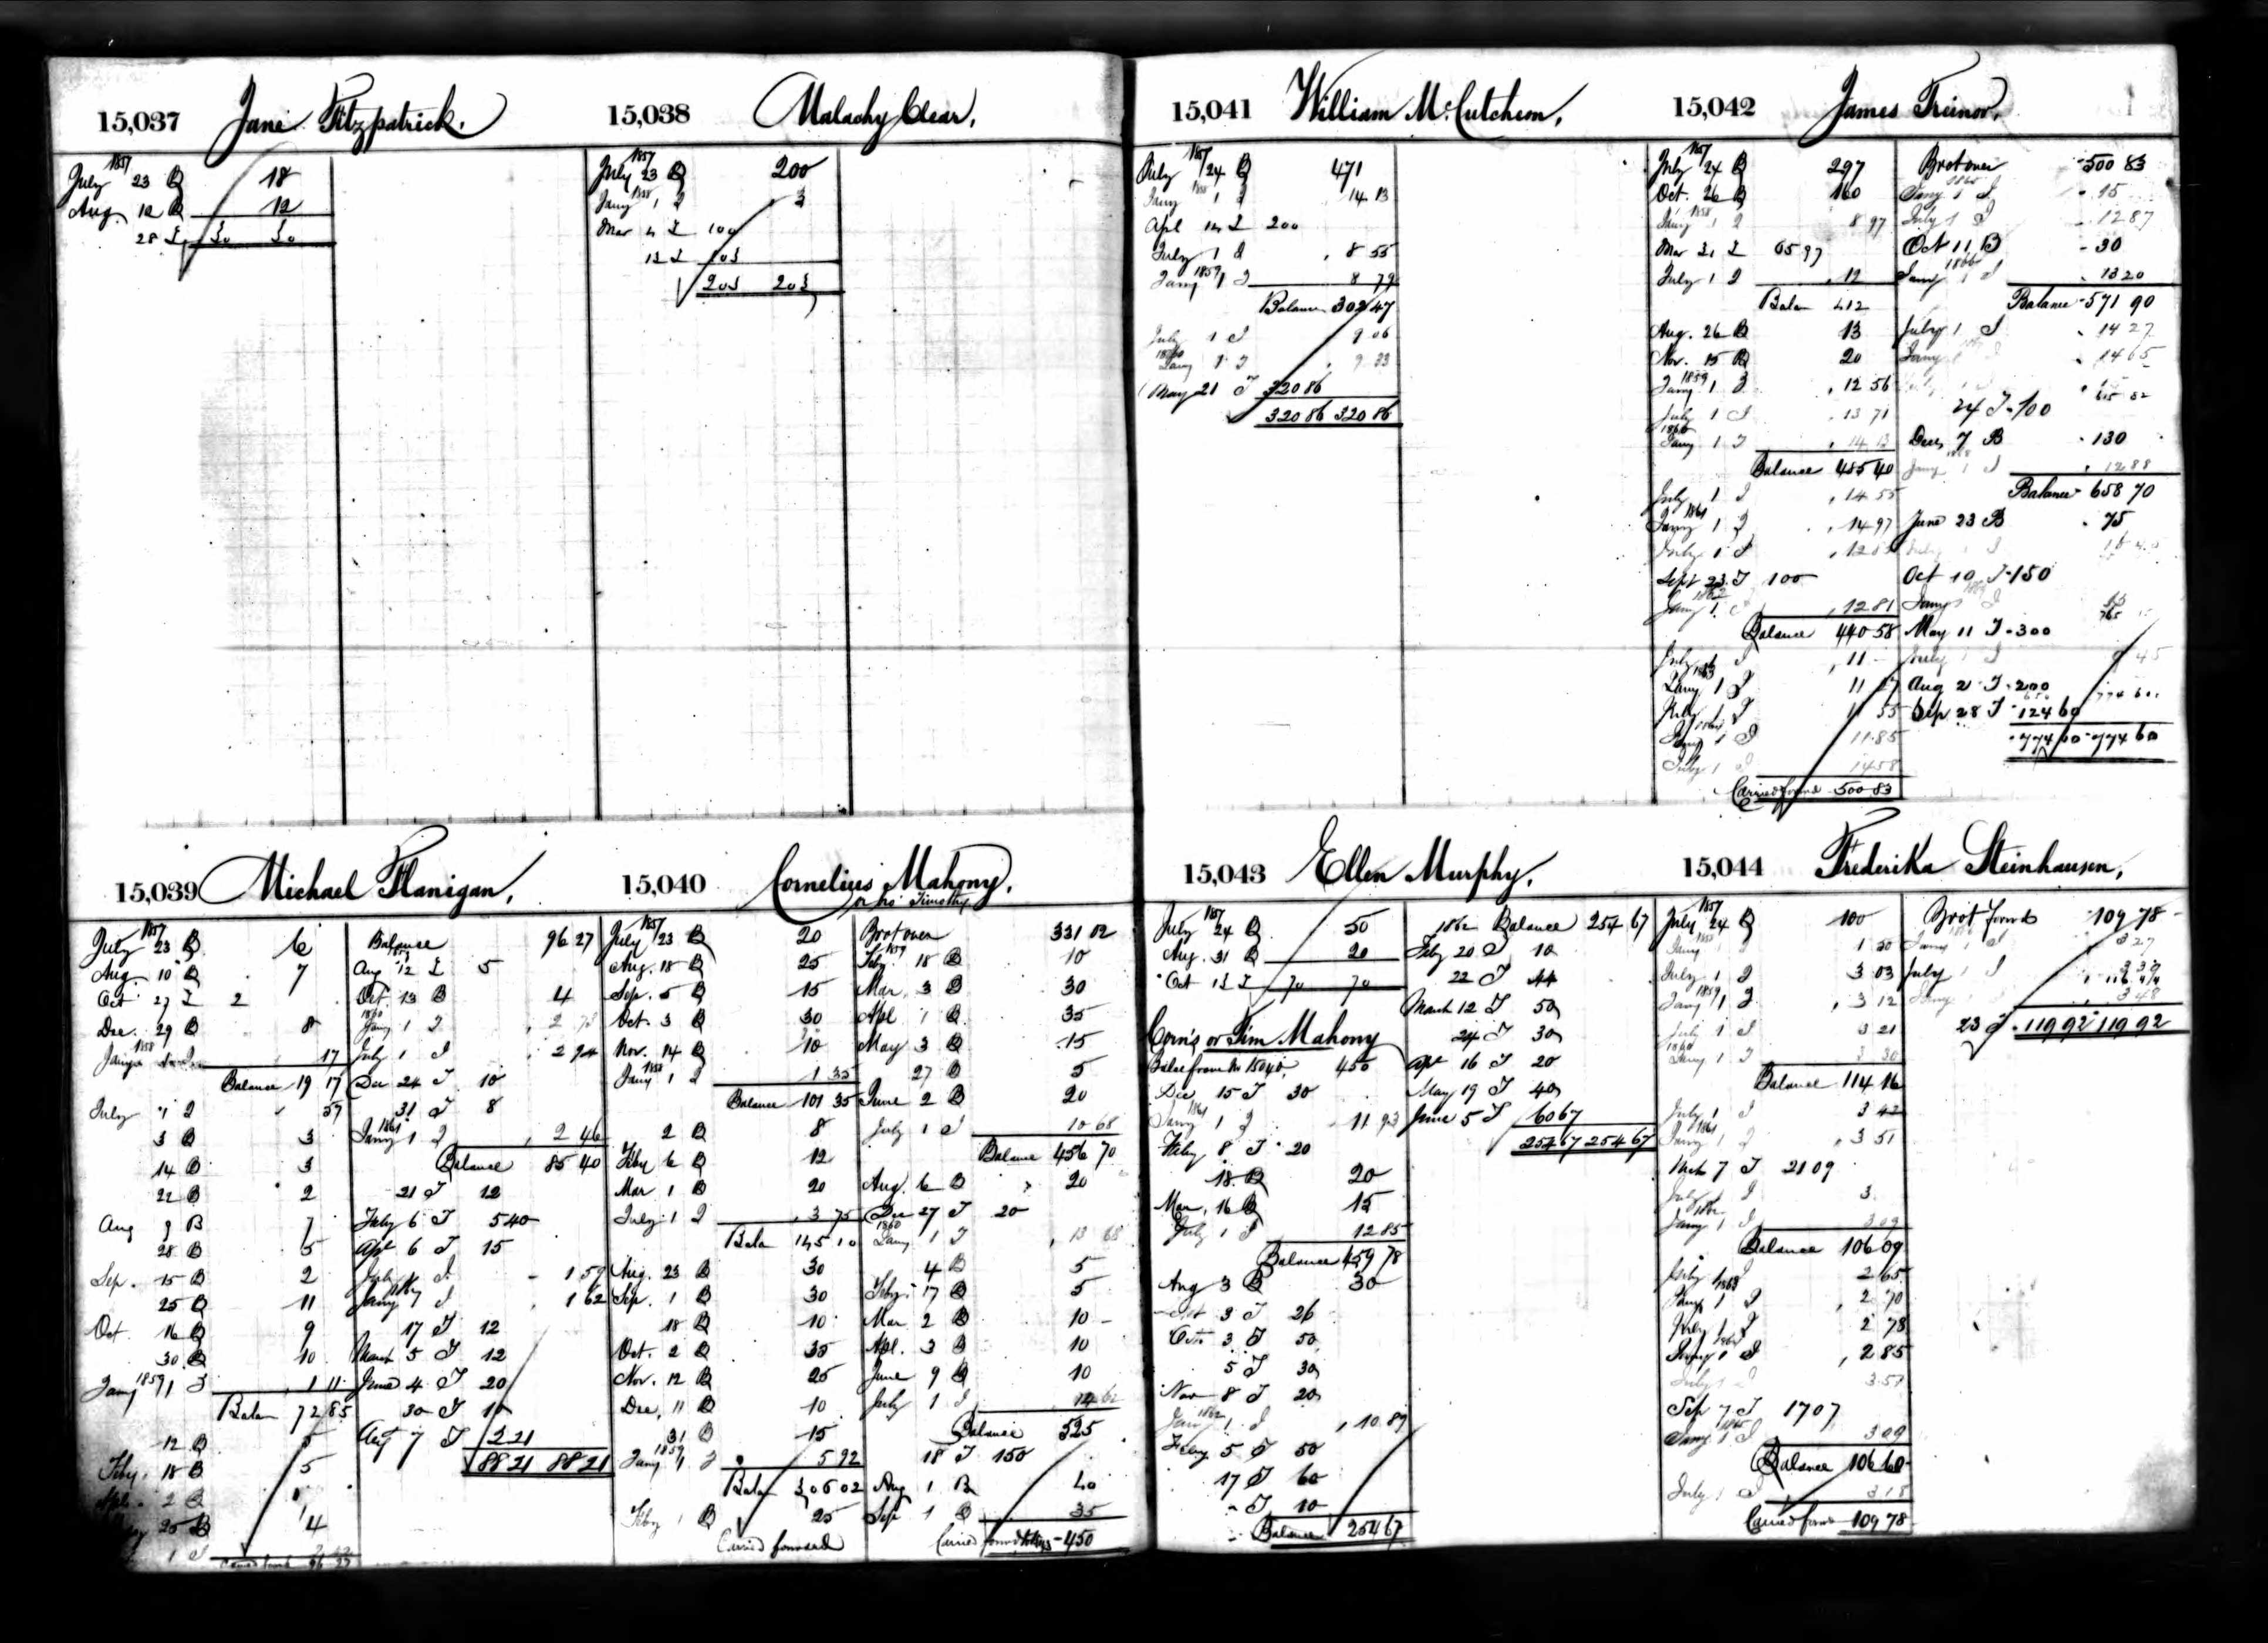 15,037 Jane Fitzpatrick.
1857
July 23 B 18
Aug. 12 B 12
28 £ 30 30
15,038 Malachy Clear,
1857
July 23 B 200
1858
Jany 1 I 3
Mar 4 £ 100
12 £ 103
203 203
15,039 Michael Flanigan,
1857
July 23 B 6
Aug. 10 B 7
Oct 27 £ 2
Dec. 29 B 8
1858
17
Balance 19 17
July 1 I 57
3 B 3
14 B 3
22 B 2
Aug 9 B 7
28 B 5
Sep. 15 B 2
25 B 11
Oct. 16 B 9
30 B 10
Jany 1859 1 I 1 11
Balan 72 85
12 B 5
Feby. 18 B 5
2 B
25 B 4
1 I
Carried forwd 96 27
Balance 96 27
1859
Aug 12 £ 5
Oct. 13 B 4
1860
Jany 1 I 2
July 1 I 2 94
Dec 24 T 10
31 T 8
1861
Jany 1 I 2 46
Balance 85 40
21 T 12
Feby 6 T 5 40
Apl 6 T 15
July 1 I 1 59
Jany 1 I 1 62
17 T 12
March 5 T 12
June 4 T 20
30 T
Aug 7 T 2 21
88 21 88 21
15,040 Cornelius Mahony,
or bro Timothy
1857
July 23 B 20
Aug. 18 B 25
Sep. 5 B 15
Oct. 3 B 30
Nov. 14 B 10
1858
Jany 1 I 1 35
Balance 101 35
2 B 8
Feby 6 B 12
Mar 1 B 20
July 1 I 3 75
Balan 145 10
Aug. 23 B 30
Sep. 1 B 30
18 B 10
Oct. 2 B 35
Nov. 12 B 25
Dec. 11 B 10
31 B 15
1859
Jany 1 I 5 92
Balan 306 02
Feby 1 B 25
Carried forward
Brot over 331 02
1859
Feby 18 B 10
Mar. 3 B 30
Apl 1 B 35
May 3 B 15
27 B 5
June 2 B 20
July 1 I 10 68
Balance 456 70
Aug. 6 B 20
Dec 27 T 20
1860
Jany 1 I 13 68
4 B 5
Feby. 17 B 5
Mar. 2 B 10
Apl. 3 B 10
June 9 B 10
July 1 I 14 62
Balance 525
18 T 150
Aug 1 B 40
Sept 1 B 35
Carried forwd 450
15,041 William McCutchem,
1857
July 24 B 471
1858
Jany 1 I 14 13
Apl 14 £ 200
July 1 I 8 55
Jany 1859 1 I 8 79
Balance 302 47
July 1 I 9 06
1860
Jany 1 I 9 33
May 21 T 320 86
320 86 320 86
15,042 James Treinor,
1857
July 24 B 297
Oct. 26 B 160
1858
Jany 1 I 8 97
Mar 31 £ 65 97
July 1 I 12
Balan 412
Aug. 26 B 13
Nov. 15 B 20
1859
Jany 1 I 12 56
July 1 I 13 71
1860
Jany 1 I 14 13
Balance 485 40
July 1 I 14 55
1861
Jany 1 I 14 97
July 1 I 12
Sept 23 T 100
1862
Jany 1 I 12 81
Balance 440 58
July 1 I 11
1863
Jany 1 I 11 27
July 1 I 11 55
1864
Jany 1 I 11 85
July 1 I 14 58
Carried forwd 500 83
Brot over 500 83
1865
Jany 1 I 15
July 1 I 12 87
Oct 11 B 30
1866
Jany 1 I 13 20
Balance 571 90
July 1 I 14 27
Jany 1 I 14 65
24 T 100
Dec. 7 B 130
1868
Jany 1 I 12 88
Balance 658 70
June 23 B 75
July 1 I
Oct 10 T 150
1869
Jany 1 I
May 11 T 300
July 1 I 9 45
Aug 2 T 200
774 60
Sep. 28 T 124 60
774 60 774 60
15,043 Ellen Murphy.
1857
July 24 B 50
Aug. 31 B 20
Oct 13 £ 70 70
Corn's or Tim Mahony
Balce from No 15040, 450
Dec 15 T 30
1861
Jany 1 I 11 93
Feby 8 T 20
18 B 20
Mar. 16 B 15
July 1 I 12 85
Balance 459 78
Aug 3 B 30
3 T 26
Octr 3 T 50
5 T 30
Nov 8 T 20
1862
Jany 1 I 10 89
Feby 5 T 50
17 T 60
T 10
Balance 254 67
1862 Balance 254 67
Feby 20 T 10
22 T 44
March 12 T 50
24 T 30
Apl 16 T 20
May 19 T 40
June 5 T 60 67
254 67 254 67
15,044 Frederika Steinhausen,
1857
July 24 B 100
1858
Jany 1 50
July 1 I 3 03
1859
Jany 1 I 3 12
July 1 I 3 21
1860
Jany 1 I 3 30
Balance 114 16
July 1 I 3 42
1861
Jany 1 I 3 51
Mch 7 T 21 09
July 1 I 3
1862
Jany 1 I 3 09
Balance 106 09
July 1 I 2 65
1863
Jany 1 I 2 70
July 1 I 2 78
1864
Jany 1 I 2 85
July 1 I 3 57
Sep 7 T 17 07
1865
Jany 1 I 3 09
Balance 106 60
July 1 I 3 18
Carried forwd 109 78
Brot forwd 109 78
1866
Jany 1 I 3 27
July 1 I 3 39
116 44
Jany 3 48
23 T 119 92 119 92